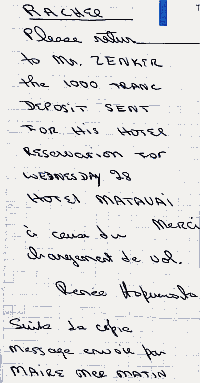 RACHEL
Please return
to Mr. ZENKER
the 1000 FRANC
DEPOSIT SENT
FOR HIS HOTEL
RESERVATION FOR
WEDNESDAY 28
HOTEL MATAVAI
Merci
à cause du
changement de vol.
Renee
Suite la copie
message envoie par
MAIRE MER MATIN